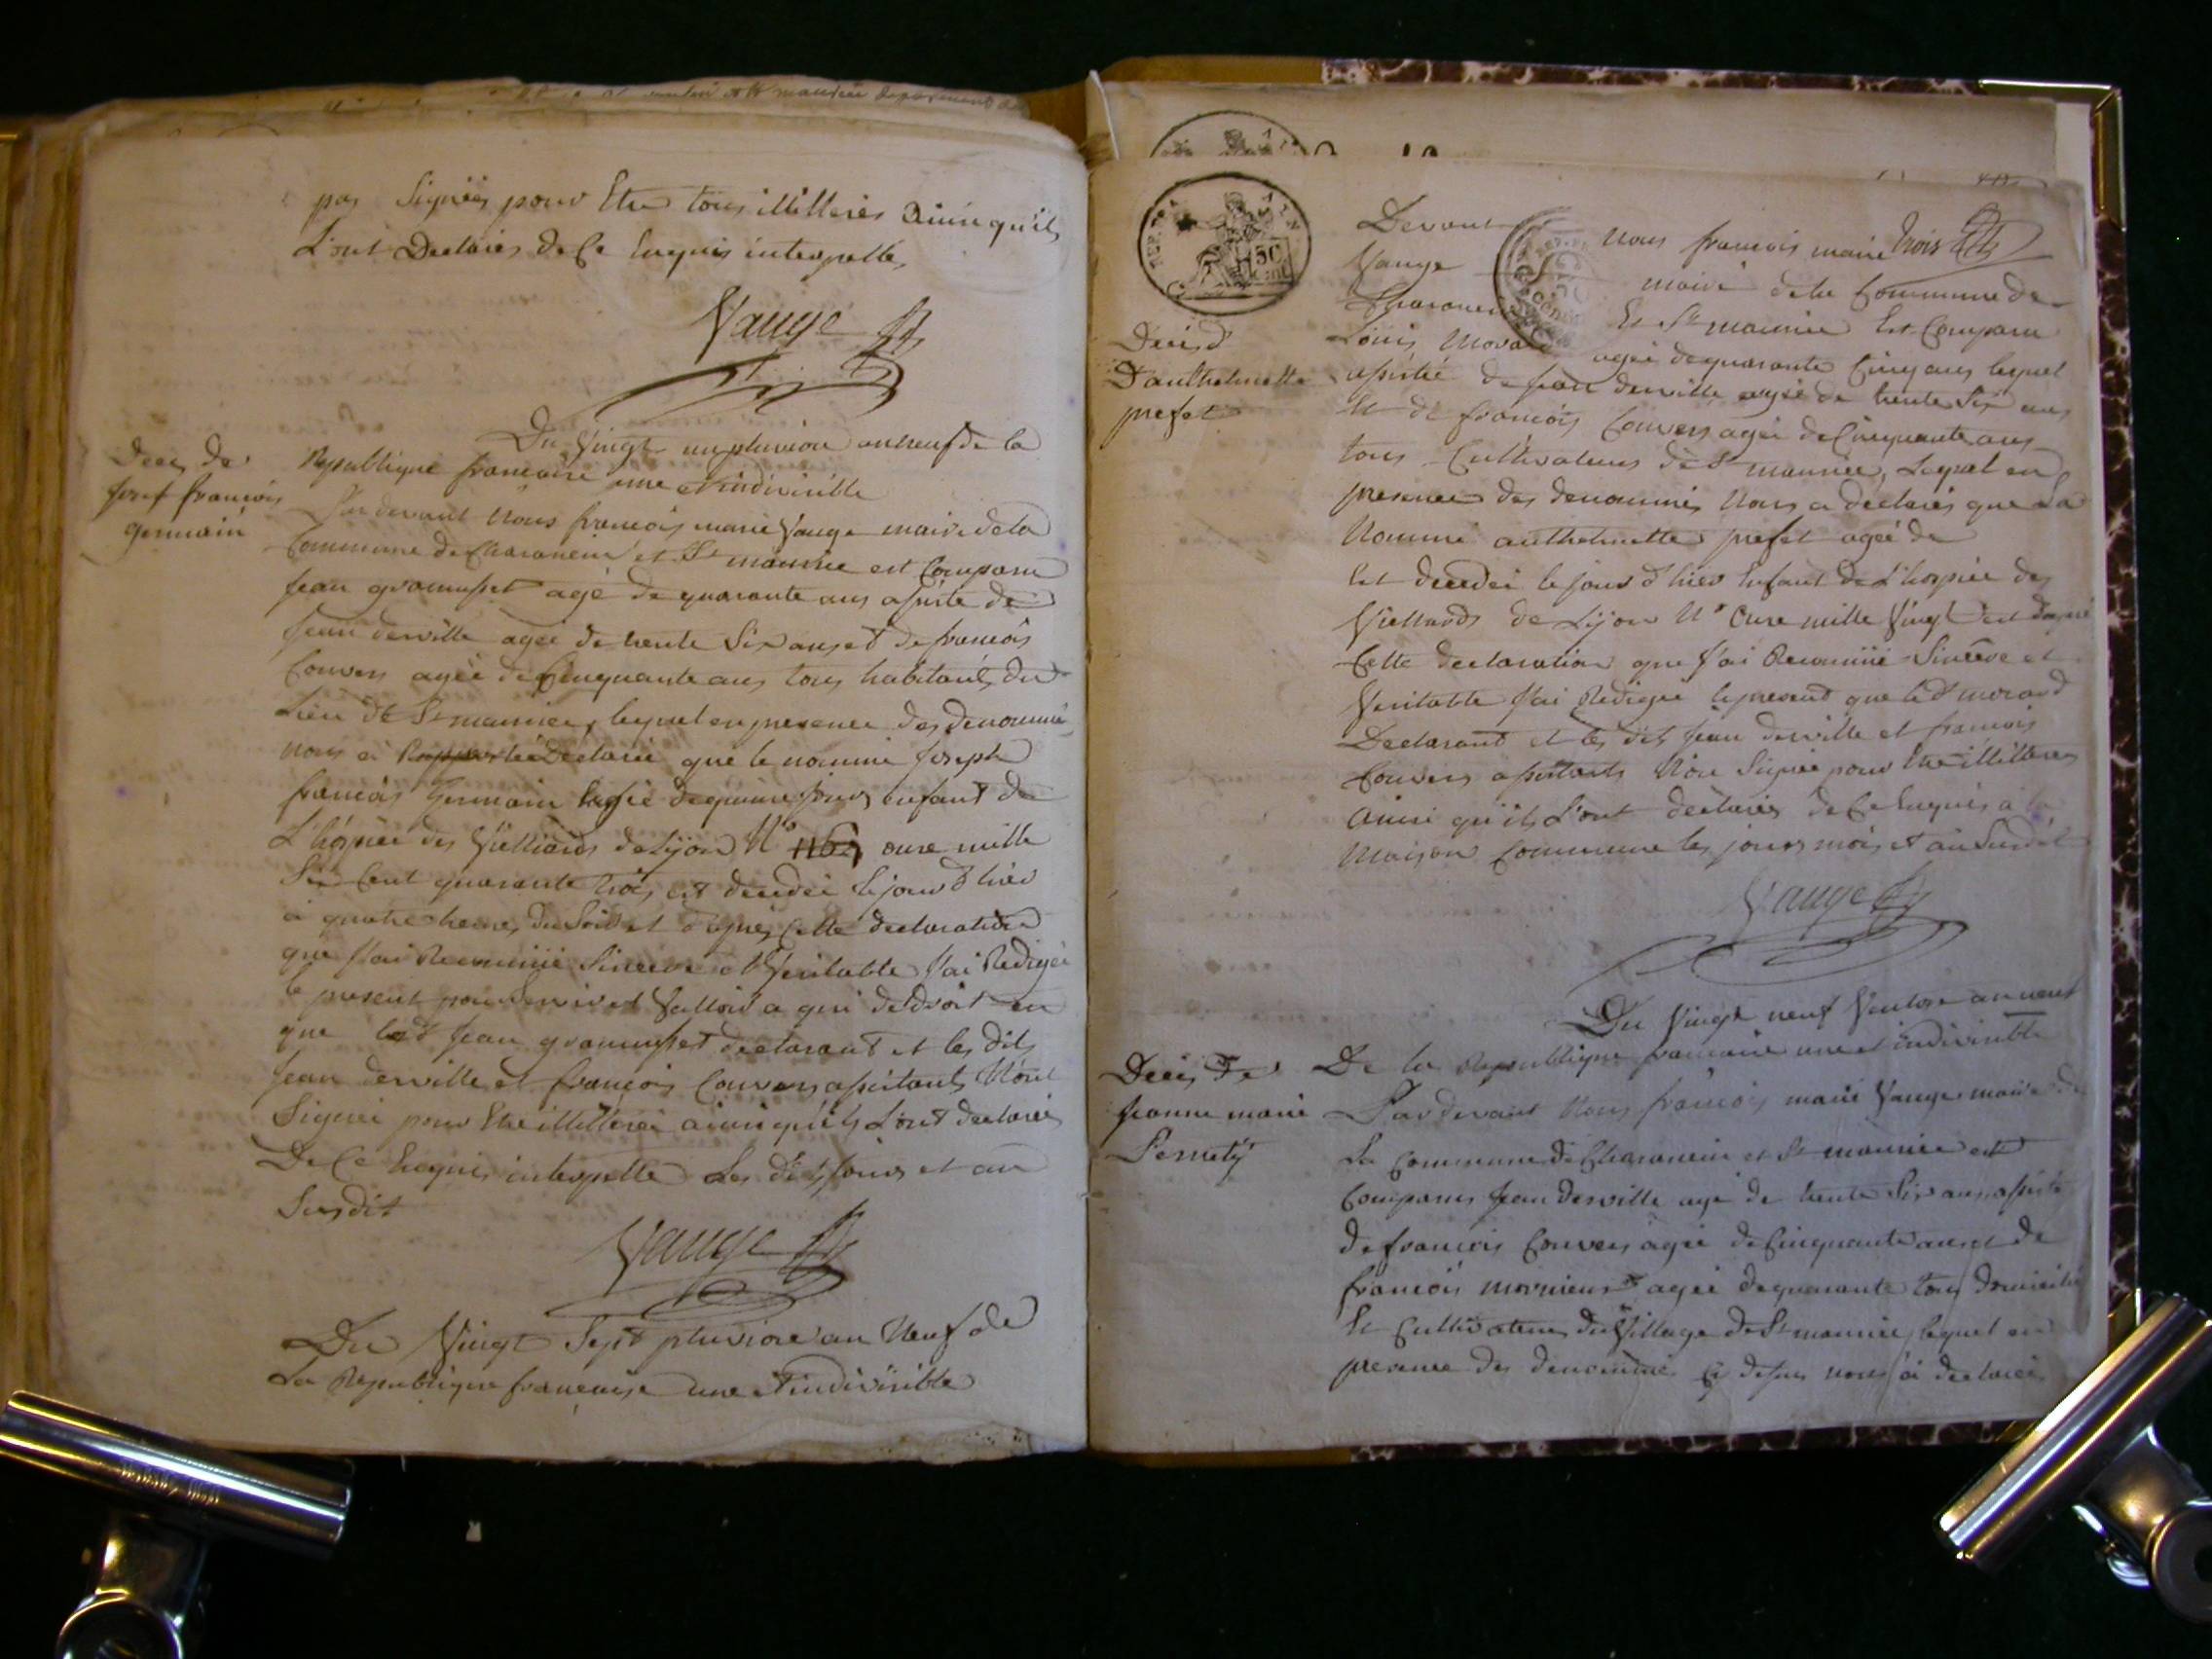 pas Signés pour Etre tous illitterés ainsi qu'ils
L'ont Declarés de Ce Enquis interpellés
Vauge
Du Vingt un pluviose an neuf de la
Republique francaise une et indivisible
Deces de
Josef francois
germain
Par devant Nous francois marie Vauge maire de la
Commune de Charancin et St maurice est Comparu
Jean gromusset agé de quarante ans assisté de
Jean derville agée de trente Six ans et de francois
Convers agée de Cinquante ans tous habitants du
Lieu de St maurice, lequel en presence des denommé
nous a Rapporteé Declaréé que le nommé Joseph
francois Germain agée de quinze jours enfant de
L'hospice des Vielliards de Lyon N° onze mille
Six Cent quarante trois est decedée le jour d'hier
a quatre heures du Soir et d'après Cette declaration
que J'ai Reconnüe Sincere et Veritable J'ai Redigée
le present pour Servir et Valloir a qui de Droit en
que led Jean gromusset declarant et les dits
Jean derville et francois Convers assistants N'ont
Signée pour Etre illitterée ainsi qu'ils L'ont declarés
De Ce Enquis interpellé Les dits jours et an
Susdit
Vauge
Du Vingt Sept pluviose an Neuf de
La Republique francaise une et indivisible
50
Devant nous francois marie trois
Vauge maire de la Commune de
Charancin Et St maurice Est Comparu
Deces d
D'anthelmette
prefet
Louis Morand agée de quarante Cinq ans lequel
assistée de Jean derville agée de trente Six ans
Et de francois Convers agée de Cinquante ans
tous Cultivateurs de St maurice, Lequel en
presence des denommés Nous a declarés que La
Nommé anthelmette prefet agée de
Est decedée le jour d'hier Enfant de L'hospice des
Viellards de Lyon N° onze mille Vingt et d'après
Cette declaration que J'ai Reconnüe Sincere et
Veritable J'ai Redigée le present que led morand
Declarant et les dits Jean derville et francois
Convers assistants N'on Signée pour Etre illitteres
Ainsi qu'ils L'ont declarés de Ce Enquis a la
Maison Commune les jours mois et an Susdit
Vauge
Du Vingt neuf Ventose an neuf
De la Republique francaise une et indivisible
Deces De
Jeanne marie
Pernety
Par devant Nous francois marie Vauge maire de
La Commune de Charancin et St maurice est
Comparus Jean derville agé de trente Six ans assisté
de francois Convers agée de Cinquante ans et de
francois agée de quarante tous domicilié
Et Cultivateurs du Village de St maurice lequel en
presence des denommés Cy dessus nous a declarés